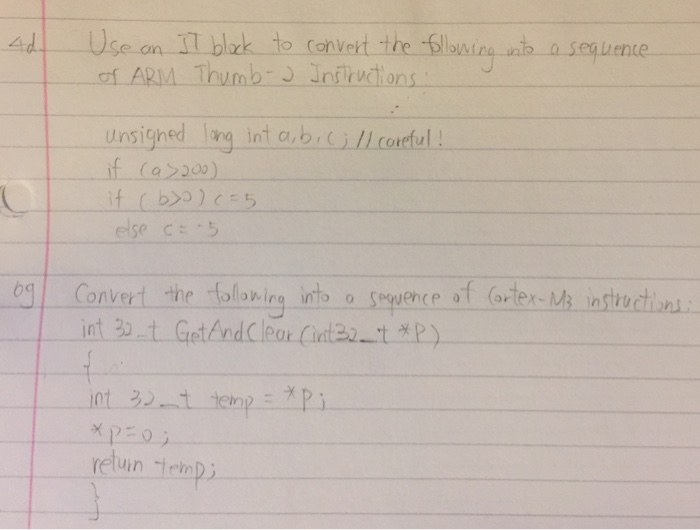 4d. Use an IT block to convert the following into a sequence
of ARM Thumb-2 Instructions:
unsigned long int a,b,c; // careful!
if (a>200)
if (b>0) c=5
else c=-5
6g Convert the following into a sequence of Cortex-M3 instructions:
int 32_t GetAndClear (int32_t *P)
{
int 32_t temp = *p;
*p=0;
return temp;
}